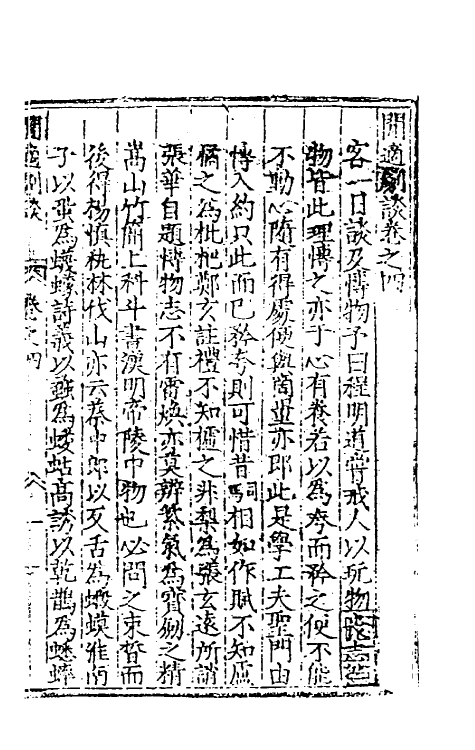 閒適劇談卷之四
客一日談及博物予曰程明道嘗戒人以玩物喪志若
物皆此理博之亦于心有養若以為夸而矜之便不能
不動心隨有得處便與茵並亦即此是學工夫聖門由
博入約只此而已矜夸則可惜昔司馬相如作賦不知盧
橘之為枇杷鄭玄註禮不知樝之非梨為張玄遠所誚
張華自題博物志不有雷煥亦莫辨紫氣為寶劒之精
嵩山竹簡上科斗書漢明帝陵中物也必問之束晳而
後得楊慎秇林伐山亦云蔡中郎以反舌為蝦蟆淮南
子以蛩為蠛蠓詩義以蟊為螻蛄高誘以乾鵲為蟋蟀
閒適劇談 卷之四 一